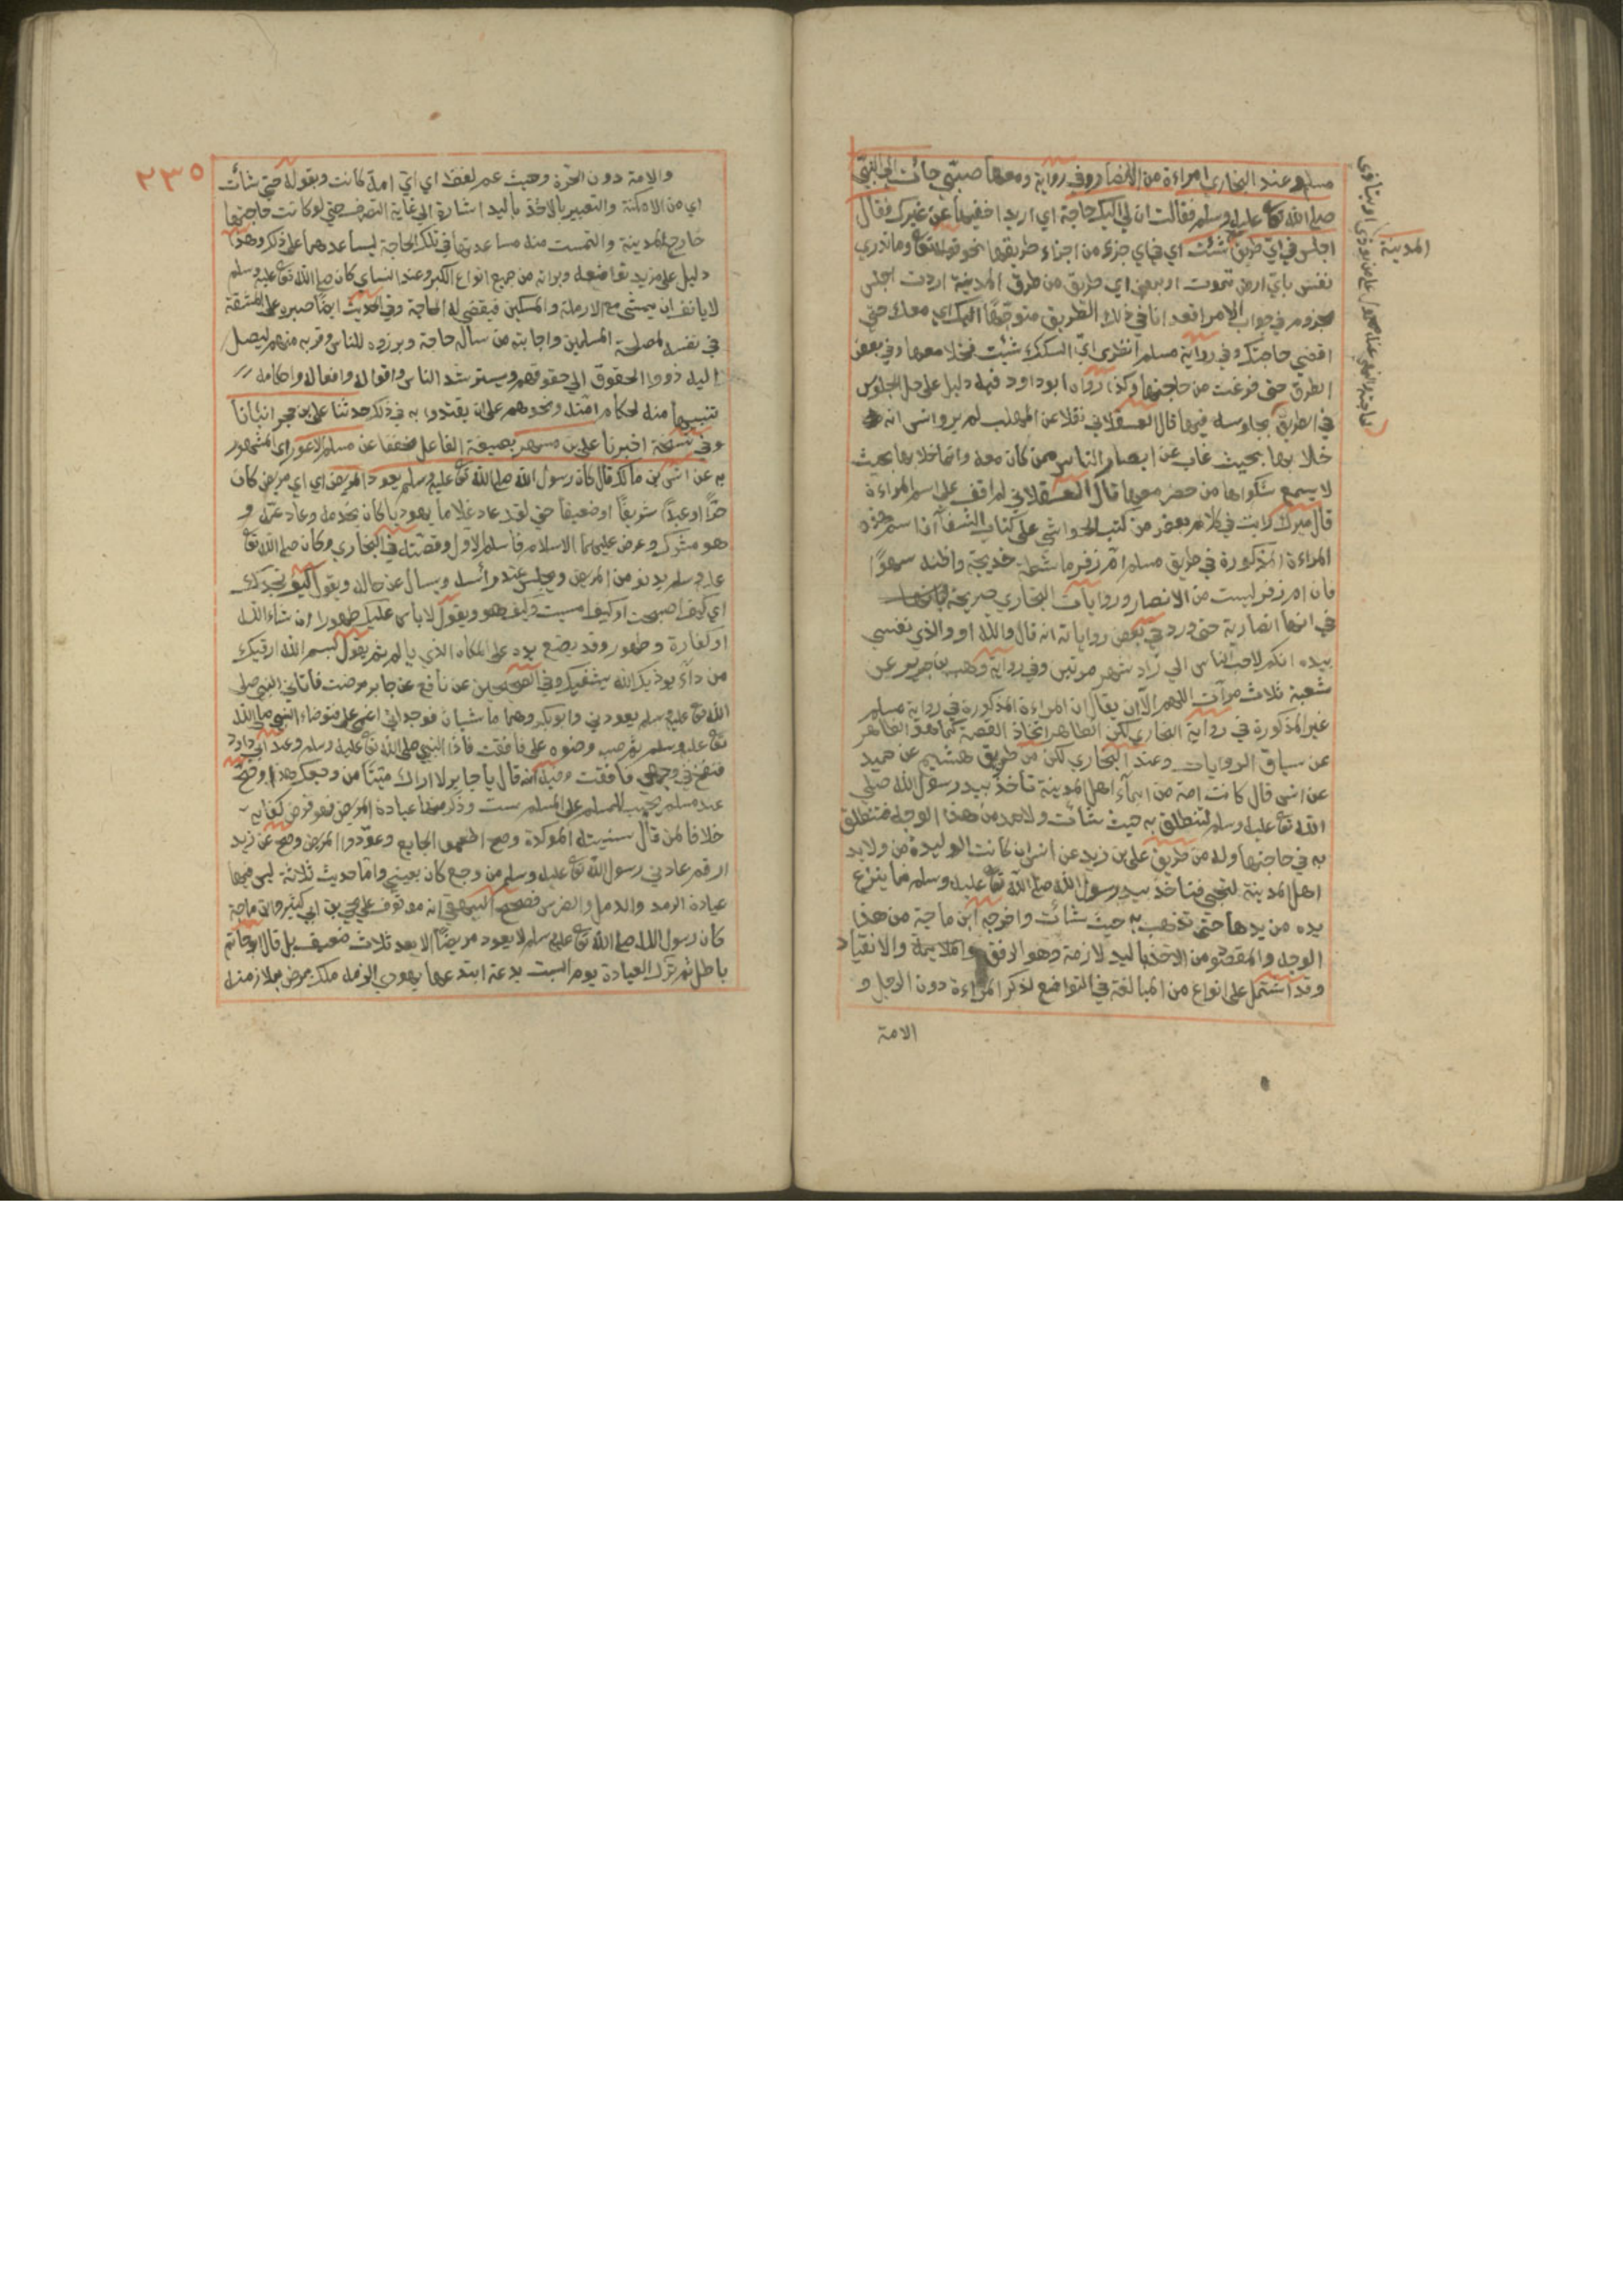 مسلم وعند البخاري امراءة من الانصار وفي رواية ومعها صبي جاءت الى النبي
صلى الله تعا عليه وسلم فقالت ان لي اليك حاجة اي اريد اخفيها عن غيرك فقال
اجلسي في اي طريق شئت اي في اي جزء من اجزاء طريقها نحو قوله تعا وما تدري
نفس باي ارض تموت اي في اي طريق من طرق المدينة اردت اجلس
مجزوم في جواب الامر اقعد انا في ذلك الطريق متوجها اليك اي معك حتى
اقضي حاجتك وفي رواية مسلم انظري اي السكك شئت فخلا معها في بعض
الطرق حتى فرغت من حاجتها وكذا رواه ابو داود فيه دليل على حل الجلوس
في الطريق قال العسقلاني نقلا عن المهلب لم يرد انس انه
خلا بها بحيث غاب عن ابصار الناس ممن كان معه وانما خلا بها بحيث
لا يسمع شكواها من حضر معها قال العسقلاني لم اقف على اسم المراءة
قال ميرك رايت في كلام بعض من كتب الحواشي على كتاب الشفا ان اسم هذه
المراءة المذكورة في طريق مسلم ام زفر ماشطة خديجة واظنه سهوا
فان ام زفر ليست من الانصار وروايات البخاري صريحة
في انها انصارية حتى ورد في بعض رواياته انه قال والله او والذي نفسي
بيده انكم لاحب الناس الي زاد مرتين وفي رواية وهب بن جرير عن
شعبة ثلاث مرات اللهم الا ان يقال ان المراءة المذكورة في رواية مسلم
غير المذكورة في رواية البخاري لكن الظاهر اتحاذ القصة كما هو الظاهر
عن سياق الروايات وعند البخاري لكن من طريق هشيم عن حميد
عن انس قال كانت امة من امآء اهل المدينة تأخذ بيد رسول الله صلى
الله تعا عليه وسلم فتنطلق به حيث شائت ولاحمد من هذا الوجه فتنطلق
به في حاجتها وله من طريق علي بن زيد عن انس ان كانت الوليدة من ولايد
اهل المدينة لتجي فتاخذ بيد رسول الله صلى الله تعا عليه وسلم فما ينزع
يده من يدها حتى تذهب به حيث شائت واخرجه ابن ماجة من هذا
الوجه والمقصود من الاخذ باليد لازمة وهو الرفق والانقياد
وقد اشتمل على انواع من المبالغة في التواضع لذكر المراءة دون الرجل و
الامة
المدينة
٢٣٥
والامة دون الحرة وحيث عم لفظ اي اي امة كانت وبقوله حتى شائت
اي من الامكنة والتعبير بالاخذ باليد اشارة الى غاية التصرف حتى لو كانت حاجتها
خارج المدينة والتمست منه مساعدتها في تلك الحاجة ليساعدها على ذلك وهذا
دليل على مزيد تواضعه وبراته من جميع انواع الكبر وعند النساي كان صلى الله تعا عليه وسلم
لا يانف ان يمشي مع الارملة والمسكين فيقضي له الحاجة وفي الحديث ايضا صبره على المشقة
في نفسه لمصلحة المسلمين واجابته من ساله حاجة وبروزه للناس وقربه منهم ليصل
اليه ذووا الحقوق الى حقوقهم ويسترشد الناس واقواله وافعاله واحكامه
تنبيها منه لحكام امته ونحوهم على ان يقتدوا به في ذلك حدثنا علي بن حجر انبأنا
وفي نسخة اخبرنا علي بن مسهر بصيغة الفاعل مخففا عن مسلم الاعور اي المشهور
به عن انس بن مالك قال كان رسول الله صلى الله تعا عليه وسلم يعود المريض اي اي مريض كان
حرا او عبدا شريفا او ضعيفا حتى لقد عاد غلاما يهوديا كان يخدمه وعاد عمه و
هو مشرك وعرض عليهما الاسلام فأسلم الاول وقصته في البخاري وكان صلى الله تعا
عليه وسلم يدنو من المريض ويجلس عند رأسه ويسأل عن حاله ويقول كيف تجدك
اي كيف اصبحت او كيف امسيت وكيف هو ويقول لا بأس عليك طهور ان شاء الله
او كفارة وطهور وقد يضع يده على المكان الذي يالم ثم يقول بسم الله ارقيك
من كل دآء يوذيك الله يشفيك وفي الصحيحين عن نافع عن جابر مرضت فأتاني النبي صلى
الله تعا عليه وسلم يعودني وابو بكر وهما ماشيان فوجداني اغمي علي فتوضاء النبي صلى الله
تعا عليه وسلم ثم صب وضوه علي فافقت فاذا النبي صلى الله تعا عليه وسلم وعند ابي داود
فنفخ في وجهي فافقت وفيه انه قال يا جابر لا اراك ميتا من وجعك هذا وصح
عند مسلم يجب للمسلم على المسلم ست وذكر منها عيادة المريض فهو فرض كفاية
خلافا لمن قال سنيته المؤكدة وصح اطعموا الجايع وعودوا المريض وصح عن زيد
ارقم عادني رسول الله تعا عليه وسلم من وجع كان بعيني واما حديث ثلاثة ليس فيها
عيادة الرمد والدمل والضرس فصحح البيهقي انه موقوف على يحيى بن ابي كثير وابن ماجة
كان رسول الله صلى الله تعا عليه وسلم لا يعود مريضا الا بعد ثلاث ضعيف بل قال ابو حاتم
باطل ثم ترك العيادة يوم السبت بدعة ابتدعها يهودي الزمه ملك يمرض بملازمته